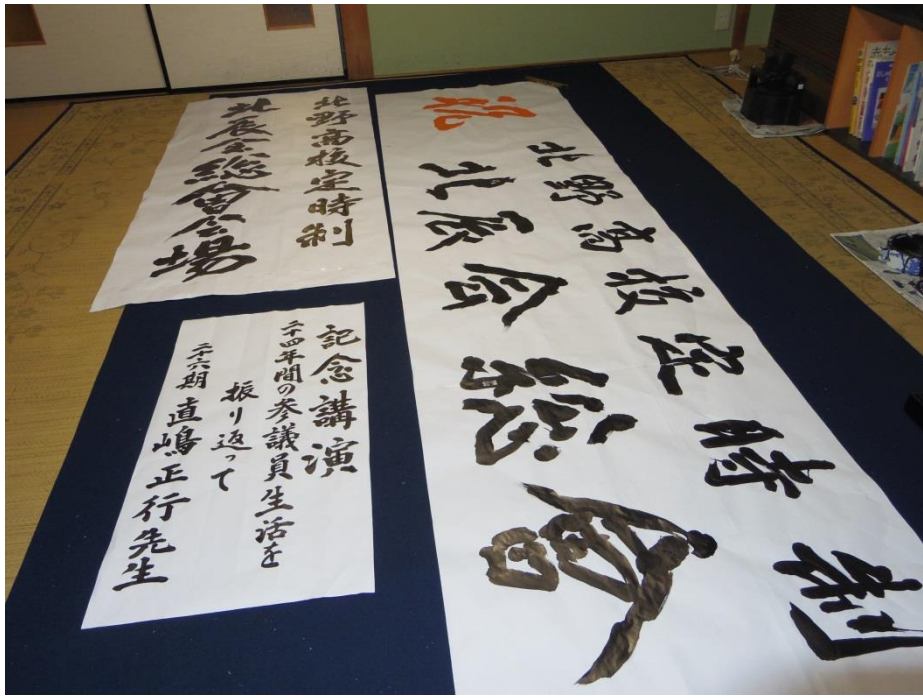 祝
北野高校定時制
北辰会総會
北野高校定時制
北辰会総會会場
記念講演
二十四年間の参議員生活を
振り返って
二十六期 直嶋正行先生